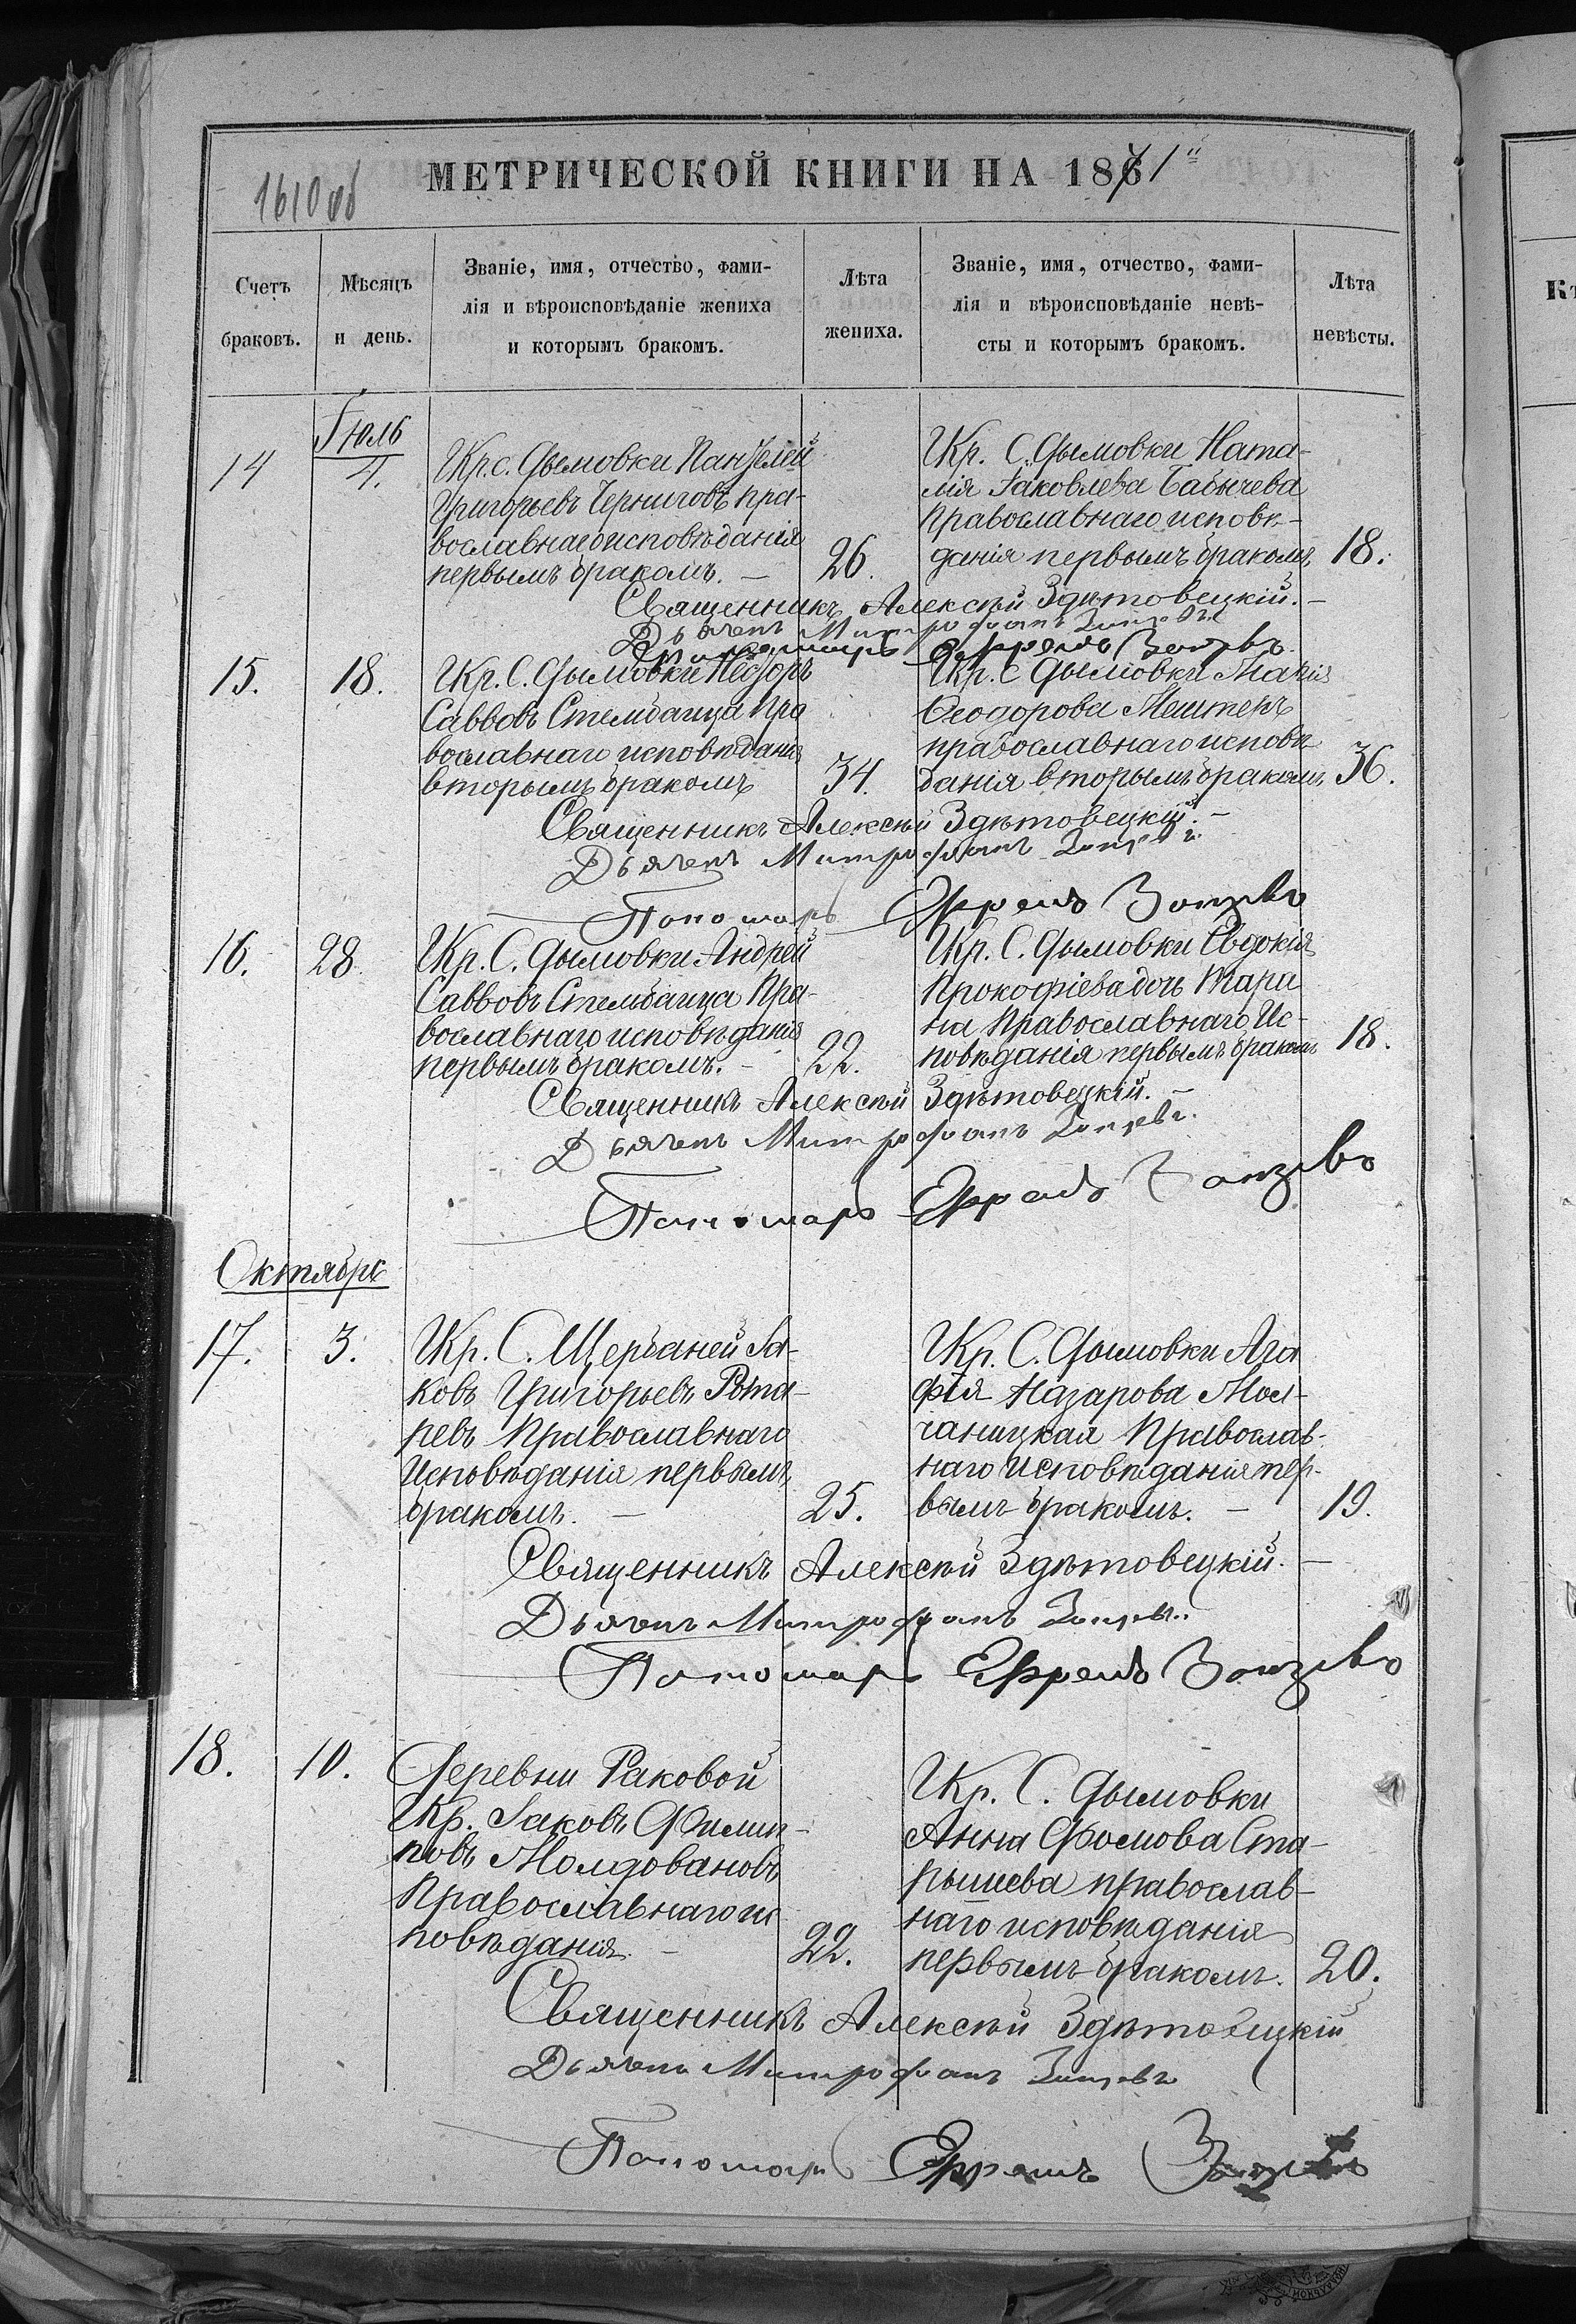 1610 об
МЕТРИЧЕСКОЙ КНИГИ НА 1871
Счетъ браковъ.
Мѣсяцъ и день.
Званіе, имя, отчество, фами-
лія и вѣроисповѣданіе жениха
и которымъ бракомъ.
Лѣта жениха.
Званіе, имя, отчество, фами-
лія и вѣроисповѣданіе невѣ-
сты и которымъ бракомъ.
Лѣта невѣсты.
Іюль
14
4.
Кр. с. Дымовки Пантелей
Григорьевъ Черниговъ пра-
вославнаго исповѣданія
первымъ бракомъ. —
26.
Кр. С. Дымовки Ната-
лія Іаковлева Бабычева
Православнаго исповѣ-
данія первымъ бракомъ
18.
Священникъ Алексѣй Здѣтовецкій. —
Дьячекъ Митрофанъ
Пономарь Ефремъ
15.
18.
Кр. С. Дымовки
Саввовъ Стембаица Пра
вославнаго исповѣданія
вторымъ бракомъ
34.
Кр. С Дымовки Марія
Ѳеодорова Мештеръ
православнаго исповѣ
данія вторымъ бракомъ
36.
Священникъ Алексѣй Здѣтовецкій. —
Дьячекъ Митрофанъ
Пономарь Ефремъ
16.
28.
Кр. С. Дымовки Андрей
Саввовъ Стембаица Пра-
вославнаго исповѣданія
первымъ бракомъ. —
22.
Кр. С. Дымовки Евдокія
Прокофіева дочь Тара
на Православнаго Ис-
повѣданія первымъ бракомъ
18.
Священникъ Алексѣй Здѣтовецкій. —
Дьячекъ Митрофанъ
Пономарь Ефремъ
Октябрь
17.
3.
Кр. С. Щербаней Іа-
ковъ Григорьевъ Рота-
ревъ Православнаго
Исповѣданія первымъ
бракомъ. —
25.
Кр. С. Дымовки Ага
фія Назарова Мол-
чаницкая Православ-
наго Исповѣданія пер-
вымъ бракомъ. —
19.
Священникъ Алексѣй Здѣтовецкій. —
Дьячекъ Митрофанъ
Пономарь Ефремъ
18.
10.
Деревни Раковой
Кр. Іаковъ Филип-
повъ Молдовановъ
Православнаго ис
повѣданія. —
22.
Кр. С. Дымовки
Анна Фомова Ста-
рышева православ-
наго исповѣданія
первымъ бракомъ.
20.
Священникъ Алексѣй Здѣтовецкій
Дьячекъ Митрофанъ
Пономарь Ефремъ